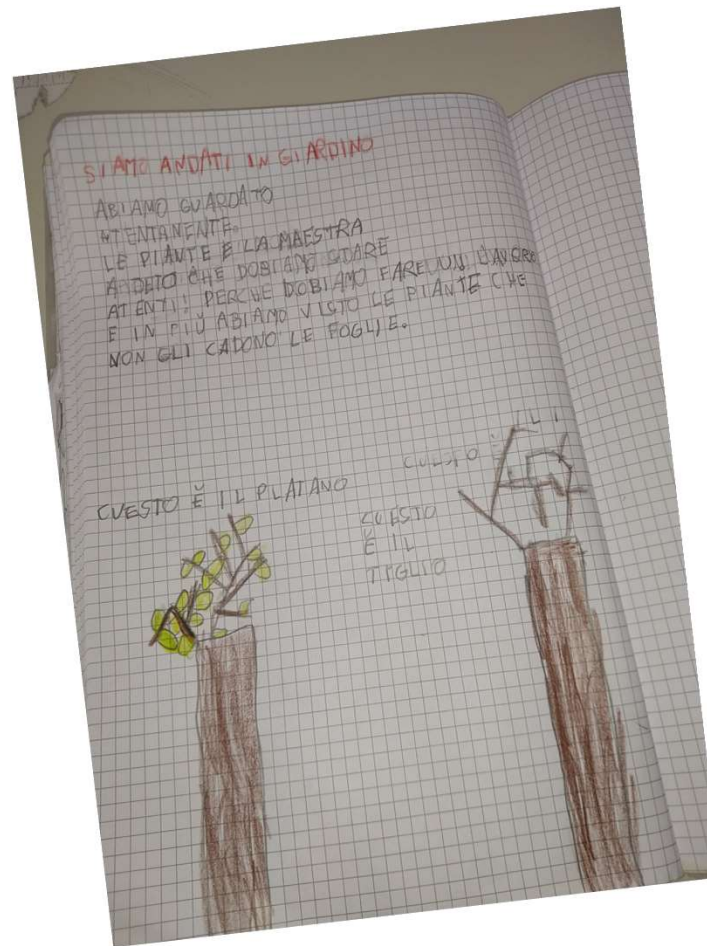 SIAMO ANDATI IN GIARDINO
ABIAMO GUARDATO
ATENTAMENTE.
LE PIANTE E LA MAESTRA
ADETO CHE DOBIAMO STARE
ATENTI! PERCHE DOBIAMO FARE UN LAVORO
E IN PIÙ ABIAMO VISTO LE PIANTE CHE
NON GLI CADONO LE FOGLIE.
CUESTO È IL PLATANO
CUESTO È
CUESTO
È IL
TIGLIO